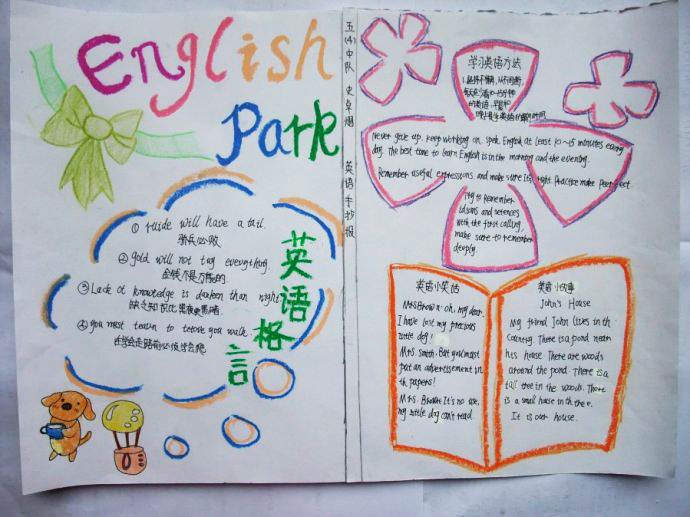 English
Park
① ruide will have a tail.
骄兵必败.
② gold will not tuy eveything.
金钱不是万能的.
③ Lack ot knowledge is darkeen than night
缺乏知识比黑夜更黑暗.
④ you must teawn to tetore you walk.
在学会走路前必须学会爬.
英语格言
五(4)中队 史卓 英语手抄报
学习英语方法
Never give up. keep working on, spek English at least 10~15 minutes every
day. The best time to learn English is in the morning and the evening.
Remember useful expressions, and make sure its right. Practice make perfect.
Try to Remember
idioms and setences
with the first calling,
make sure to remember
deeply.
英语小笑话
Mrs Brown: oh, my dear.
I have lost my precious
little dog!
Mrs. Smith: But you must
put an advertisement in
th papers!
Mrs. Brown: It's no use,
my little dog can't read.
英语小故事
John's House
My friend John lives in th
Country. There is a pond near
his house. There are woods
around the pond. phere is a
tall tree in the woods. There
is a small house in the e.
It is our house.